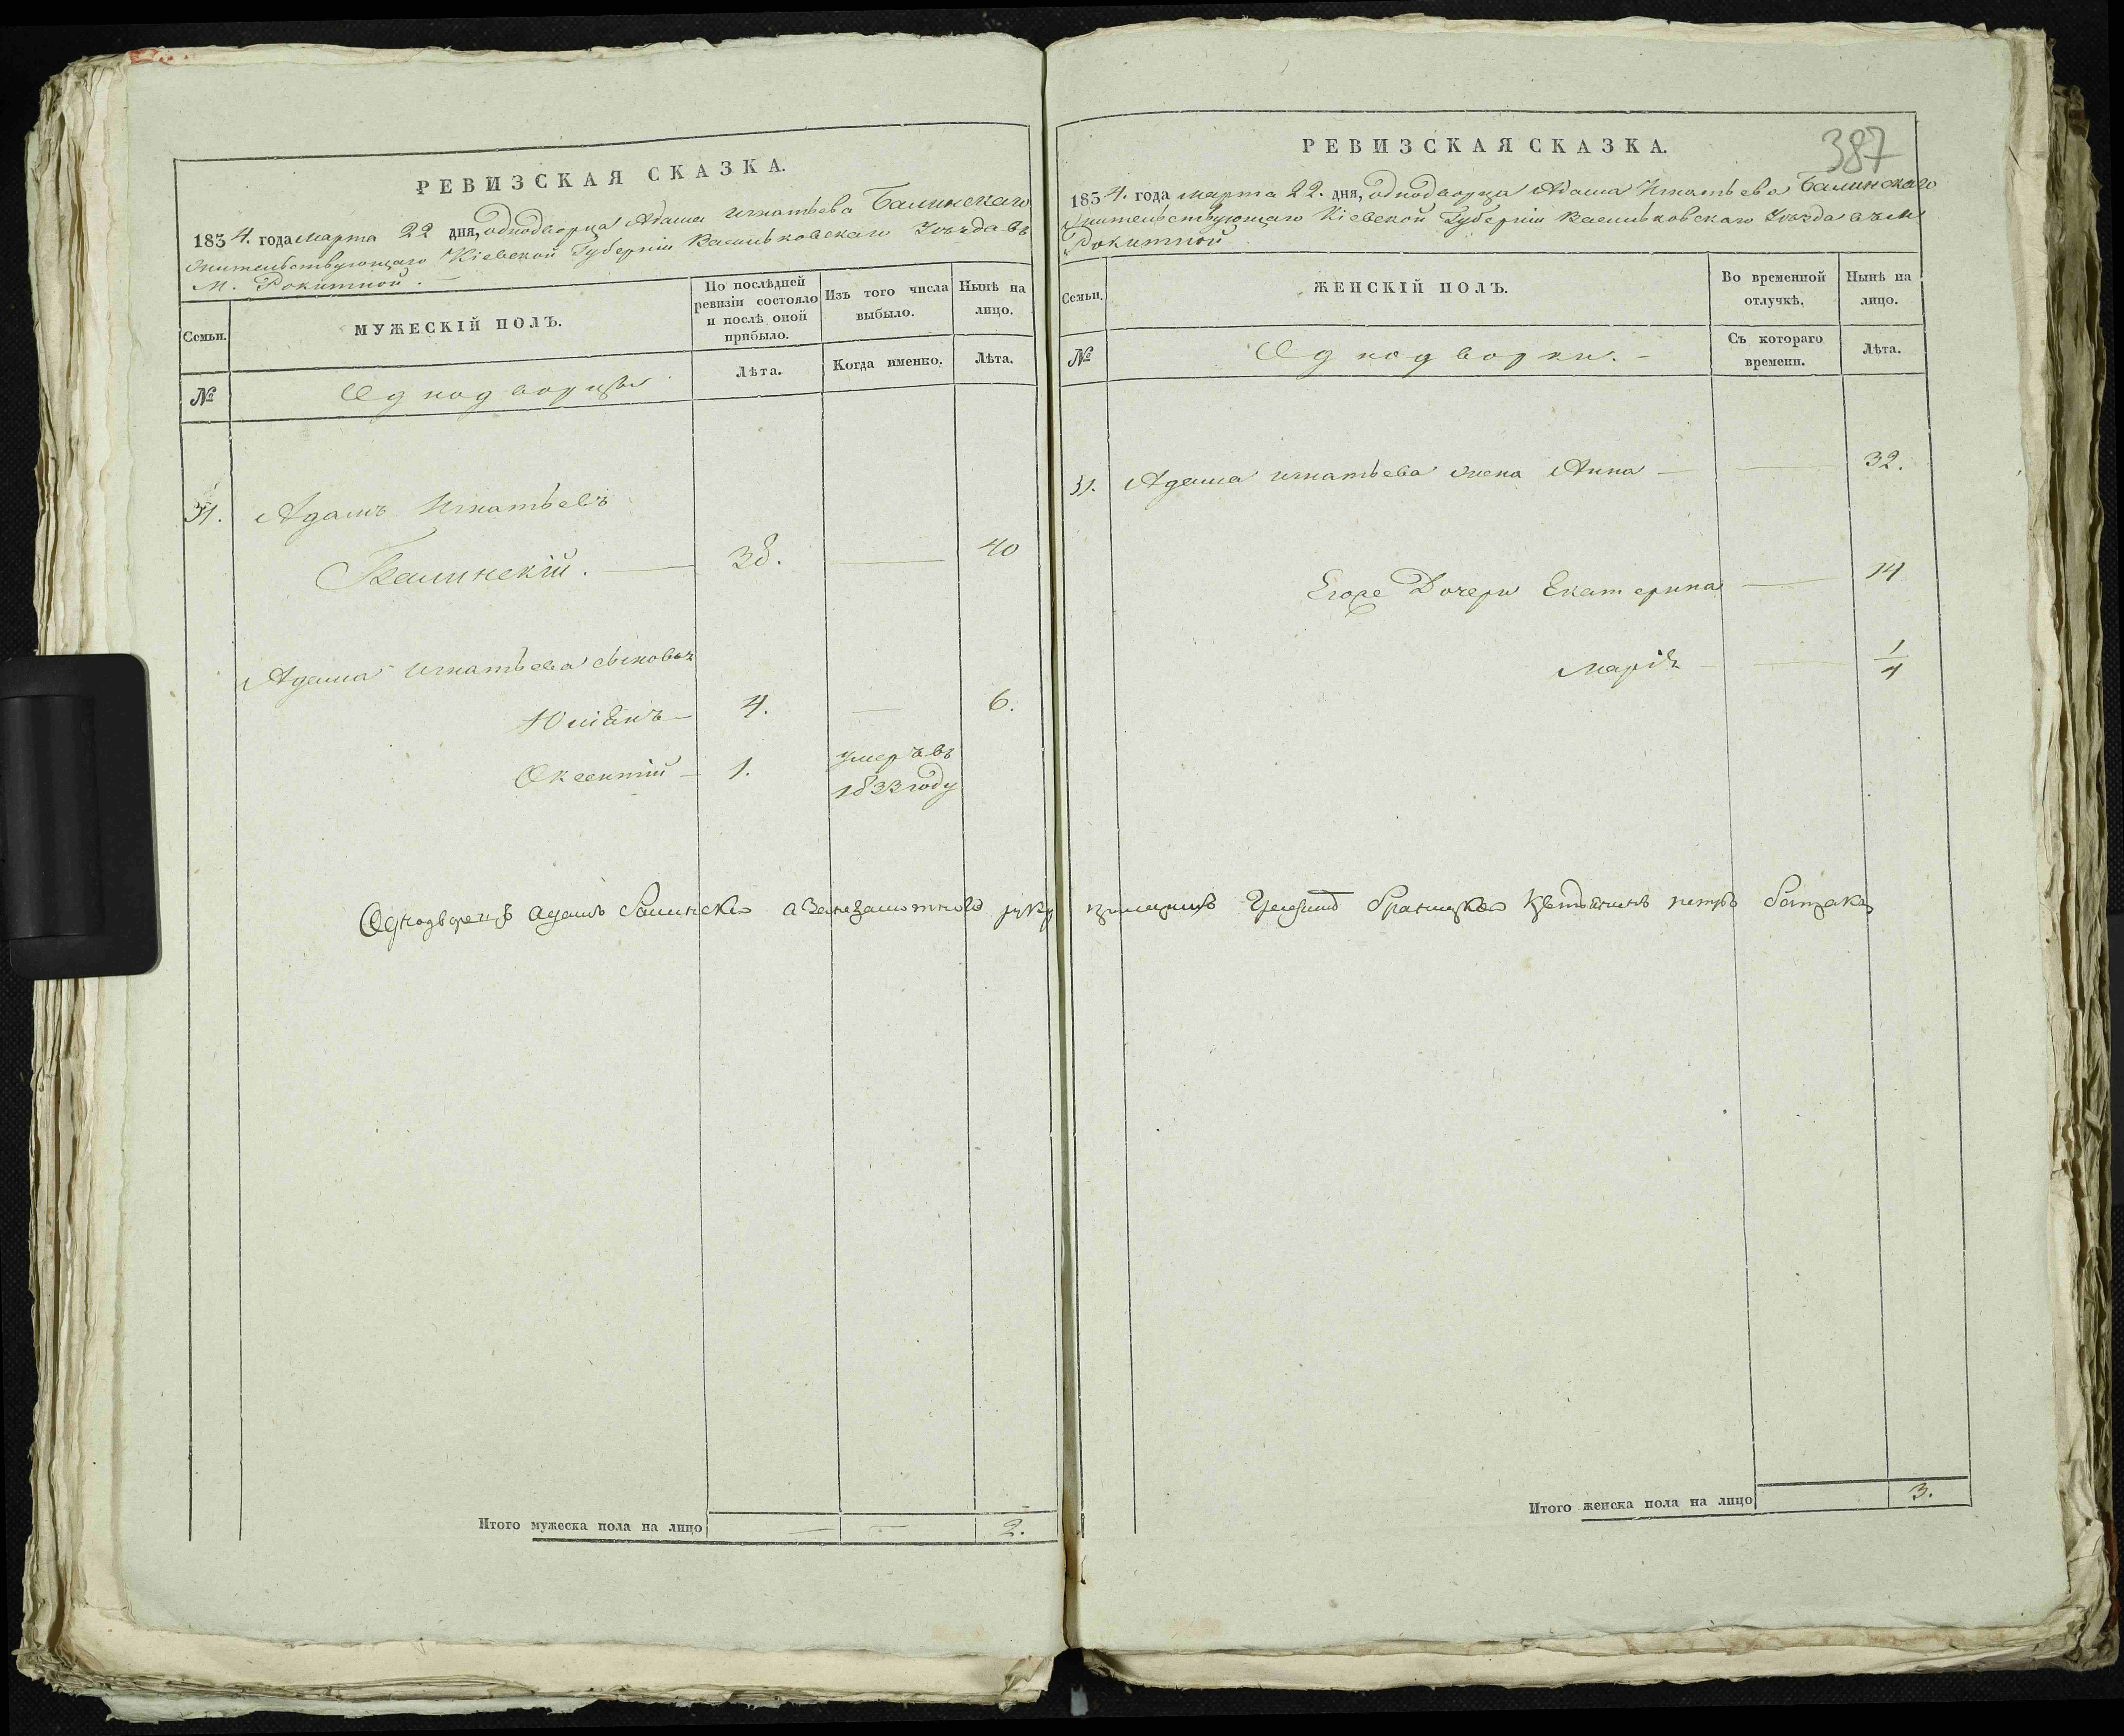 РЕВИЗСКАЯ СКАЗКА.
1834. года марта 22 дня, однодворца Адама Игнатьева Балинскаго
жительствующаго Кіевской Губерніи Васильковскаго Уѣзда въ
М. Рокитной.
Семьи.
МУЖЕСКІЙ ПОЛЪ.
По послѣдней
ревизіи состояло
и послѣ оной
прибыло.
Изъ того числа
выбыло.
Нынѣ на
лицо.
№
Однодворцы
Лѣта.
Когда именно.
Лѣта.
31. Адамъ Игнатьевъ
Балинскій. — 38. — 40
Адама Игнатьева сыновья
Юліанъ — 4. — 6.
Оксентій — 1. умеръ въ
1833 году
Однодворецъ Адамъ Балински а за неграмотного руку
Итого мужеска пола на лицо — — 2.
387
РЕВИЗСКАЯ СКАЗКА.
1834. года марта 22. дня, однодворца Адама Игнатьева Балинскаго
жительствующаго Кіевской Губерніи Васильковскаго Уѣзда въ М
Рокитной
Семьи.
ЖЕНСКІЙ ПОЛЪ.
Во временной
отлучкѣ.
Нынѣ на
лицо.
№
Однодворки. —
Съ котораго
времени.
Лѣта.
31. Адама Игнатьева жена Анна — — 32.
Егоже Дочери Екатерина — 14
Марія — — 1/4
петръ
Итого женска пола на лицо 3.